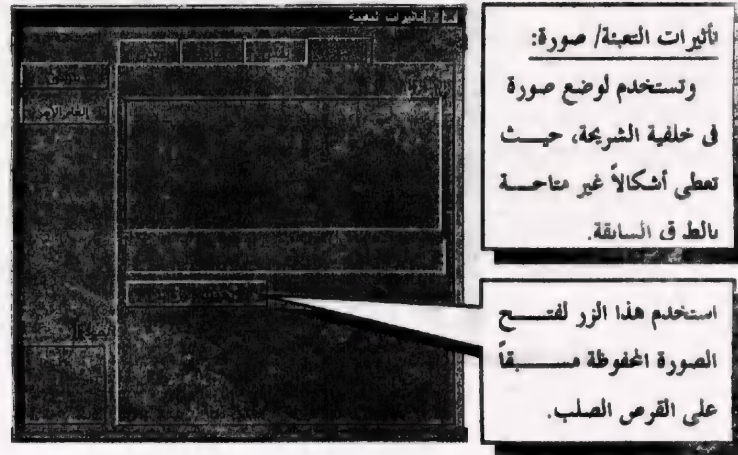 تأثيرات تعبئة
تأثيرات التعبئة/ صورة:
وتستخدم لوضع صورة
فى خلفية الشريحة، حيـــث
تعطى أشكالاً غير متاحـــة
بالطرق السابقة.
استخدم هذا الزر لفتـــح
الصورة المحفوظة مســـبقاً
على القرص الصلب.